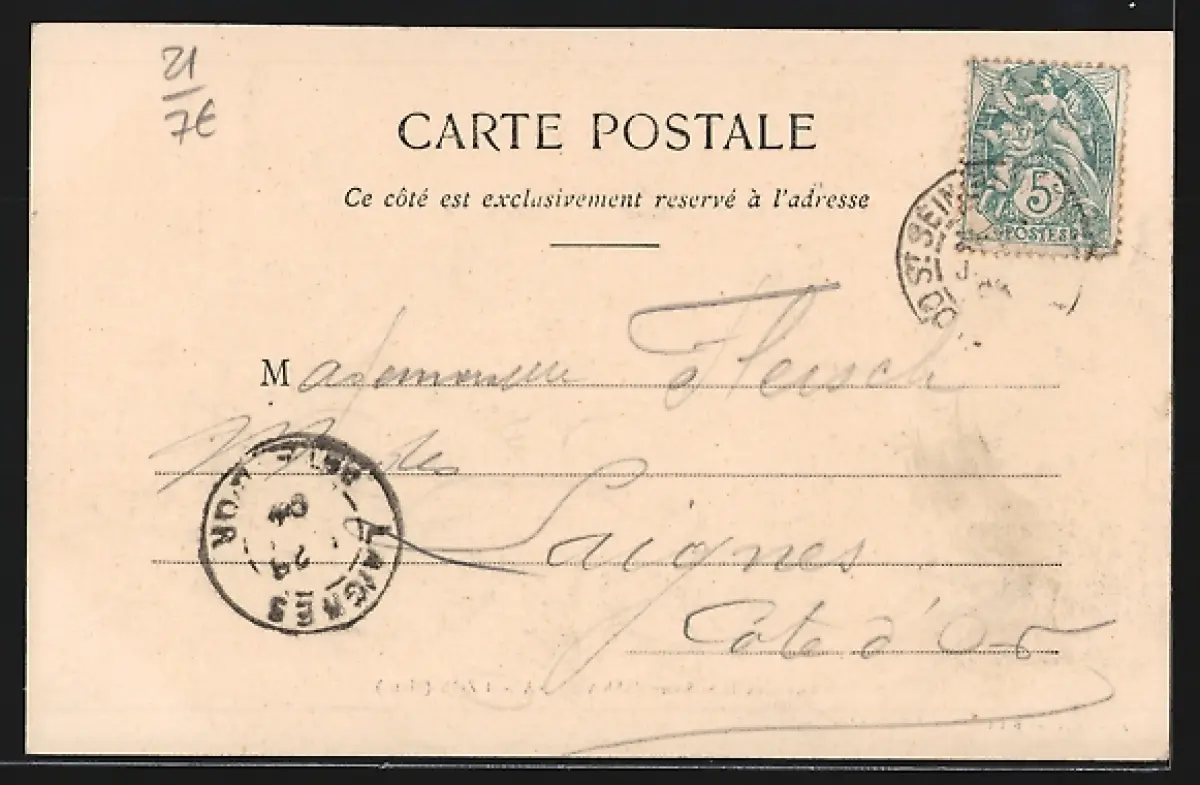 21
7€
CARTE POSTALE
Ce côté est exclusivement reservé à l'adresse
5c
POSTES
ST SEINE
Mademoiselle Fleisch
Modes
Laignes
Côte d'Or
LAIGNES
D'OR
24
04